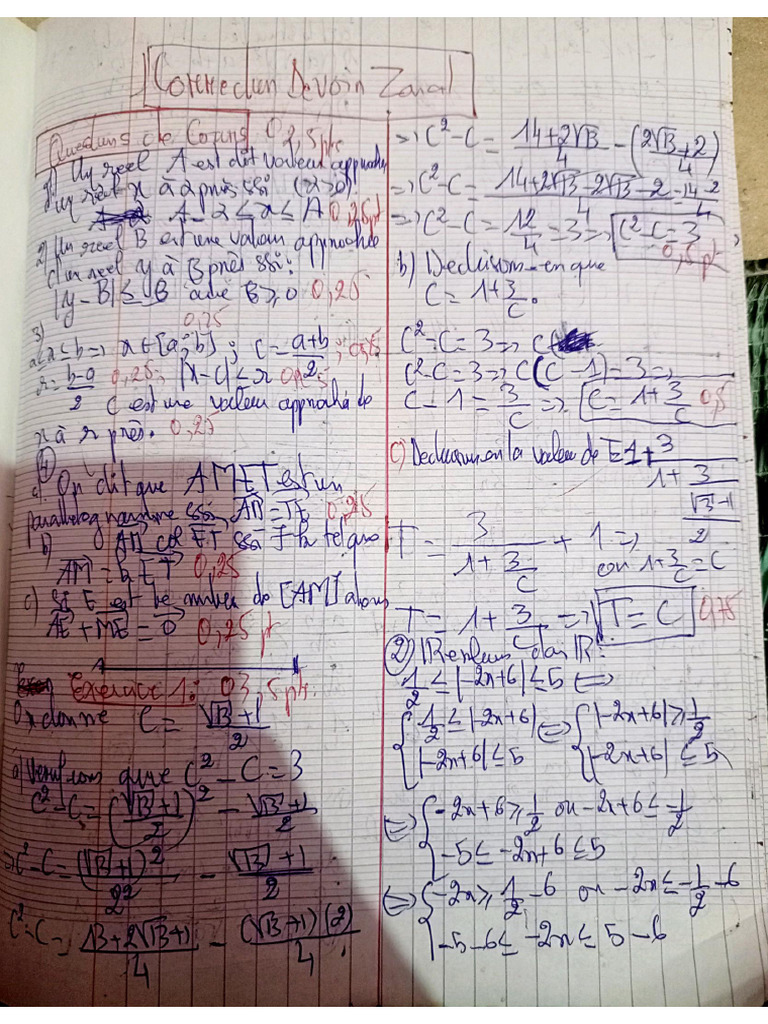 Correction Devoir Zonal
Questions de Cours 02,5pts
1) Un réel A est dit valeur approchée
un réel x à α près ssi (α>0)
A - α ≤ x ≤ A 0,25pt
2) Un réel B est une valeur approchée
d'un réel y à B près ssi:
|y - B| ≤ B avec B ≥ 0 0,25
3) 0,25
a≤x≤b => x ∈ [a; b] ; c = a+b/2 ; 0,25
r = b-a/2 0,25; |x-c| ≤ r 0,25
c est une valeur approchée de
x à r près. 0,25
4)
a) On dit que AMET est un
parallélogramme ssi AM = TE 0,25
b) AM col ET ssi ∃ k tel que
AM = k ET 0,25
c) Si E est le milieu de [AM] alors
AE + ME = 0 0,25 pt
Exercice 1: 03,5pts.
On donne C = √13 + 1/2
a) Vérifions que C² - C = 3
C² - C = (√13 + 1/2)² - √13 + 1/2
=> C² - C = (√13 + 1)²/2² - √13 + 1/2
C² - C = 13 + 2√13 + 1/4 - (√13 + 1)(2)/4
=> C² - C = 14 + 2√13/4 - (2√13 + 2/4)
=> C² - C = 14 + 2√13 - 2√13 - 2/4 = 14 - 2/4
=> C² - C = 12/4 = 3 => C² - C = 3
0,5 pt
b) Déduisons-en que
C = 1 + 3/C.
C² - C = 3 => C
C² - C = 3 => C(C - 1) = 3 =>
C - 1 = 3/C => C = 1 + 3/C 0,5
c) Déduisons la valeur de T = 1 + 3/1 + 3/√13 + 1/2
T = 3/1 + 3/C + 1 => or 1 + 3/C = C
T = 1 + 3/C => T = C 0,75
2) Résolvons dans IR:
1/2 ≤ |-2x+6| ≤ 5 <=>
{ 1/2 ≤ |-2x+6| <=> { |-2x+6| ≥ 1/2
|-2x+6| ≤ 5 |-2x+6| ≤ 5
<=> { -2x+6 ≥ 1/2 ou -2x+6 ≤ -1/2
-5 ≤ -2x+6 ≤ 5
<=> { -2x ≥ 1/2 - 6 ou -2x ≤ -1/2 - 6
-5-6 ≤ -2x ≤ 5 - 6